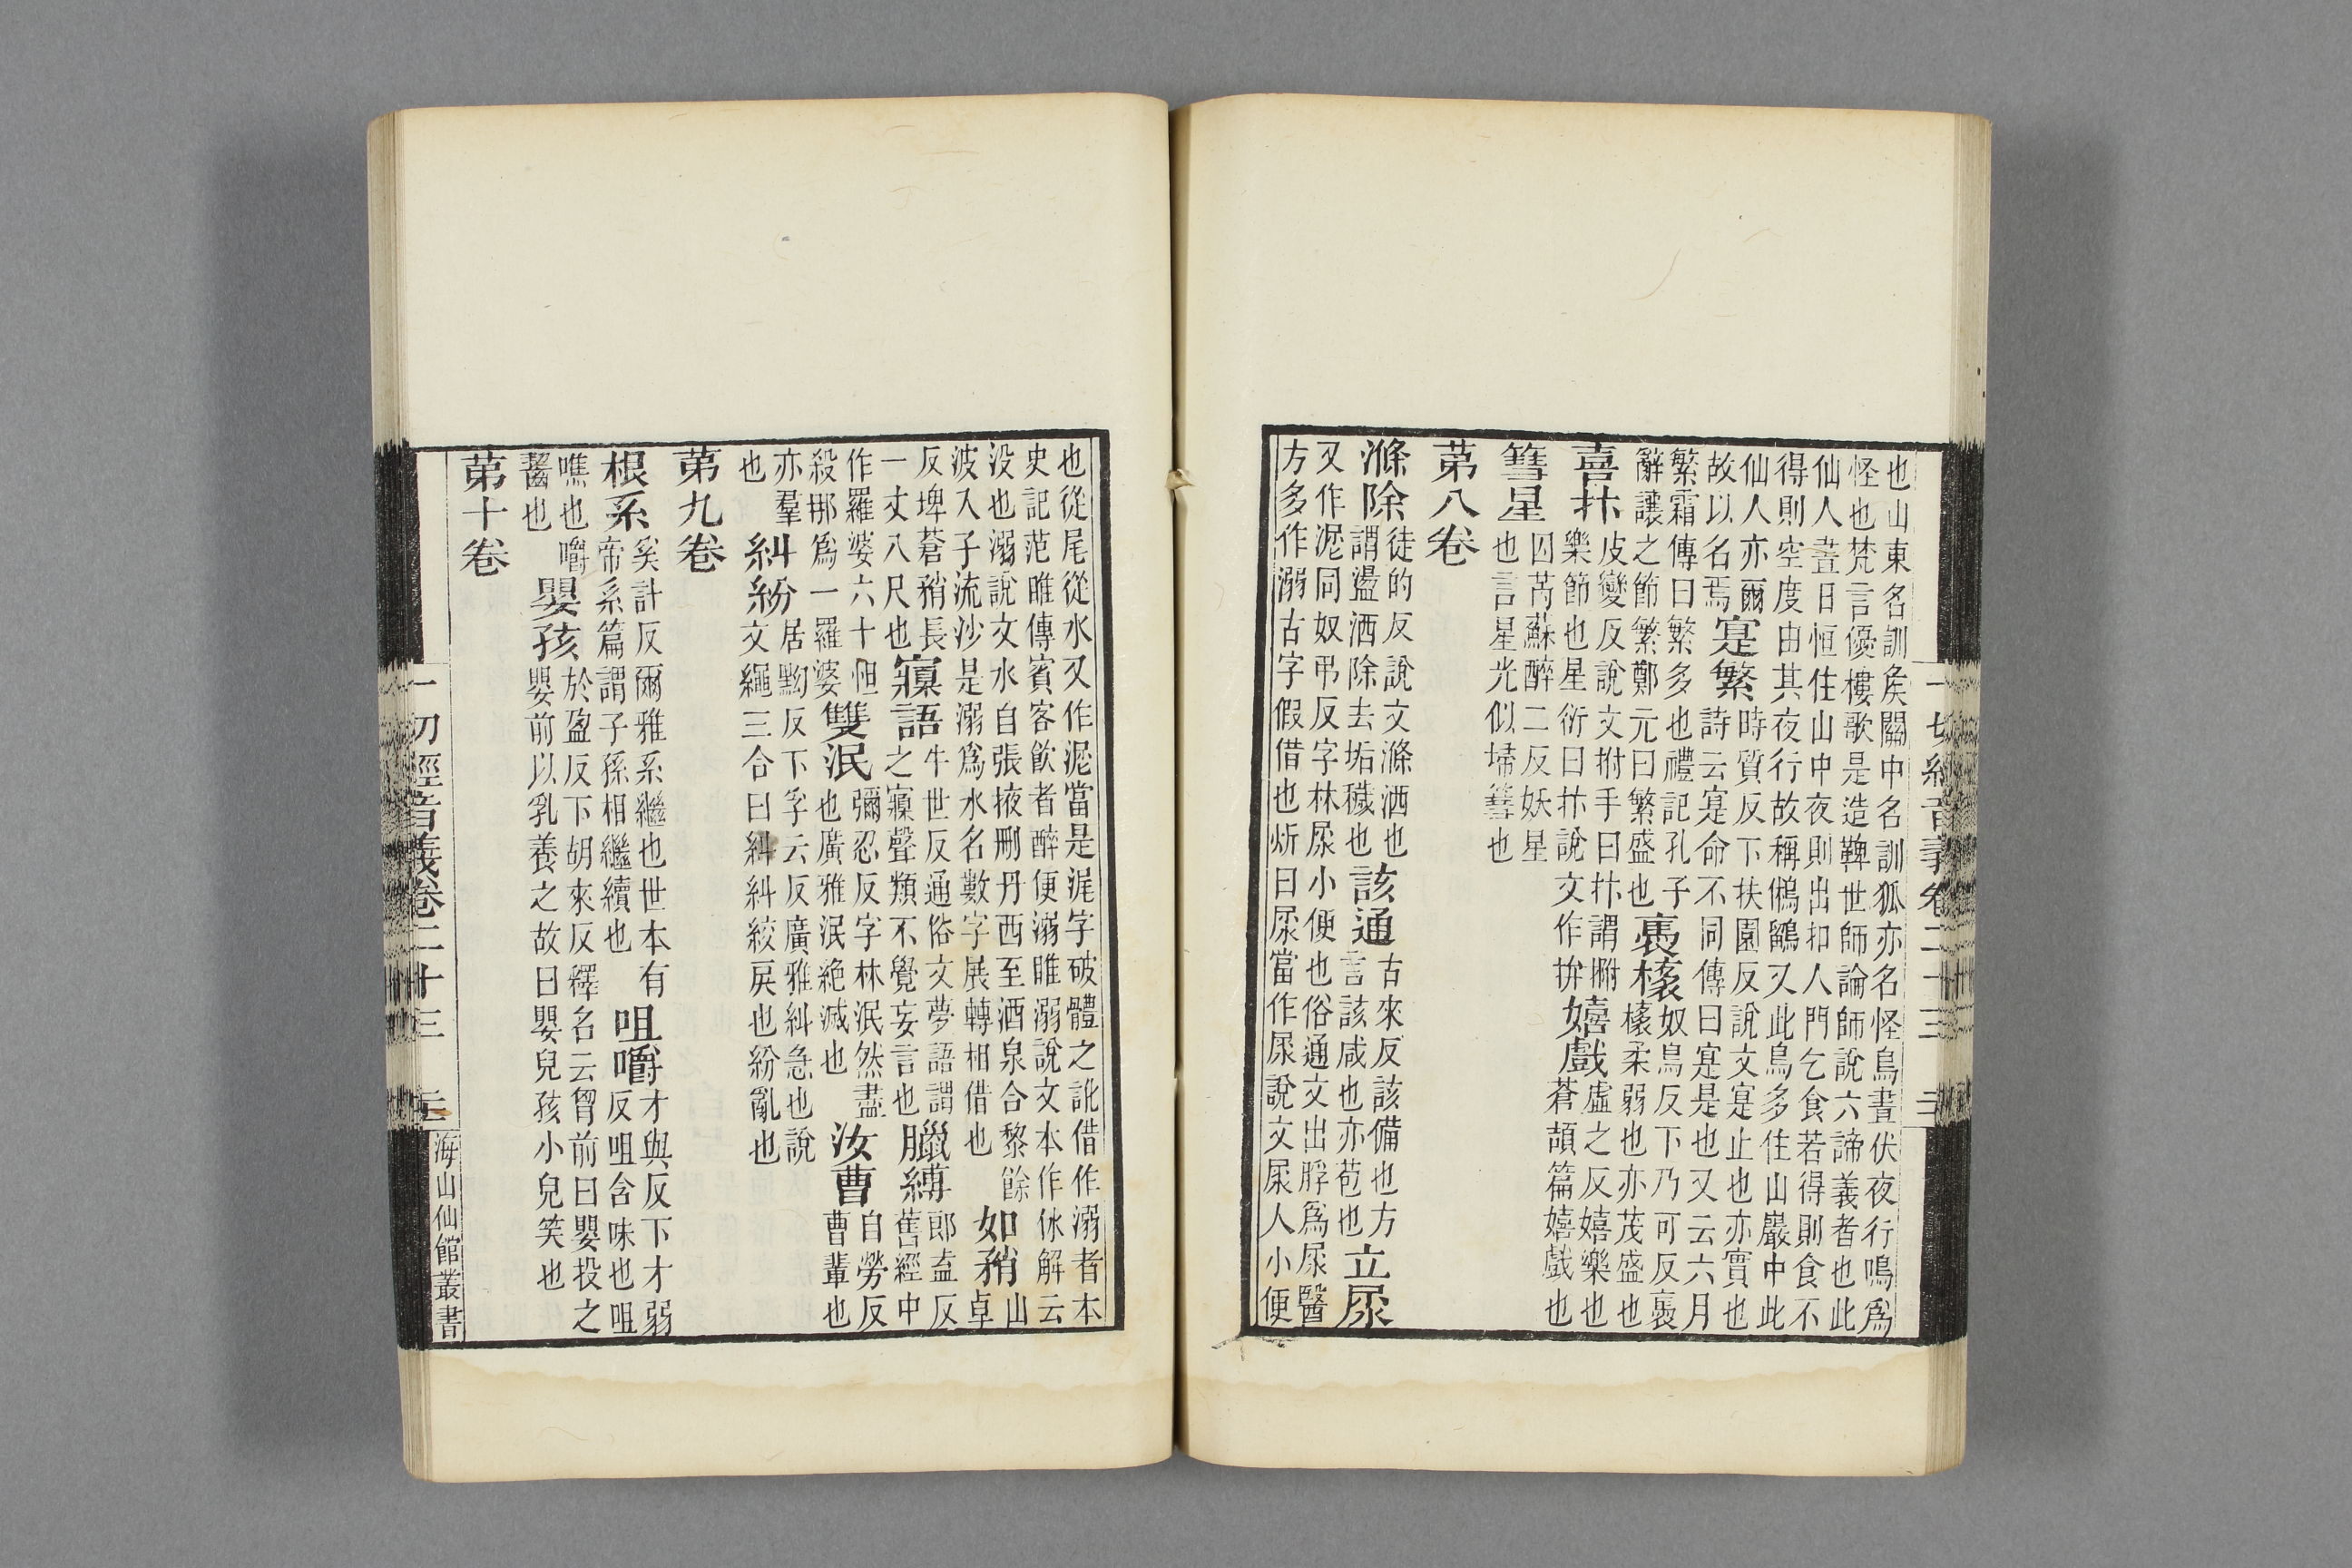 一切經音義卷二十三
也山東名訓矦關中名訓狐亦名怪鳥晝伏夜行鳴爲
怪也梵言優樓歌是造鞞世師論師說六諦義者也此
仙人晝日恒住山中夜則出扣人門乞食若得則食不
得則空度由其夜行故稱鵂鶹又此鳥多住山巖中此
仙人亦爾
故以名焉
寔繁
時質反下扶園反說文寔止也亦實也
詩云寔命不同傳曰寔是也又云六月
繁霜傳曰繁多也禮記孔子
辭讓之節繁鄭元曰繁盛也
裊
奴鳥反下乃可反裊
柔弱也亦茂盛也
喜抃
皮變反說文拊手曰抃謂拊
樂節也星衍曰抃說文作拚
嬉戲
虛之反嬉樂也
蒼頡篇嬉戲也
篲星
囚芮蘇醉二反妖星
也言星光似埽篲也
第八卷
滌除
徒的反說文滌洒也
謂盪洒除去垢穢也
該通
古來反該備也方
言該咸也亦苞也
立尿
又作㲽同奴弔反字林尿小便也俗通文出脬爲尿醫
方多作溺古字假借也炘曰尿當作尿說文尿人小便
也從尾從水又作㲽當是浘字破體之訛借作溺者本
史記范睢傳賓客飲者醉便溺睢溺說文本作㲻解云
没也溺說文水自張掖刪丹西至酒泉合黎餘
波入于流沙是溺爲水名數字展轉相借也
如矟
山卓
反埤蒼矟長
一丈八尺也
寱語
牛世反通俗文夢語謂
之寱聲類不覺妄言也
臘縛
郎盍反
舊經中
作羅婆六十怛
殺挪爲一羅婆
雙泯
彌忍反字林泯然盡
也廣雅泯絶滅也
汝曹
自勞反
曹輩也
亦羣
也
糾紛
居黝反下孚云反廣雅糾急也說
文繩三合曰糾糾絞戾也紛亂也
第九卷
根系
奚計反爾雅系繼也世本有
帝系篇謂子孫相繼續也
咀嚼
才與反下才弱
反咀含味也咀
嚼也嚼
齧也
嬰孩
於盈反下胡來反釋名云胷前曰嬰投之
嬰前以乳養之故曰嬰兒孩小兒笑也
第十卷
一切經音義卷二十三
海山仙館叢書